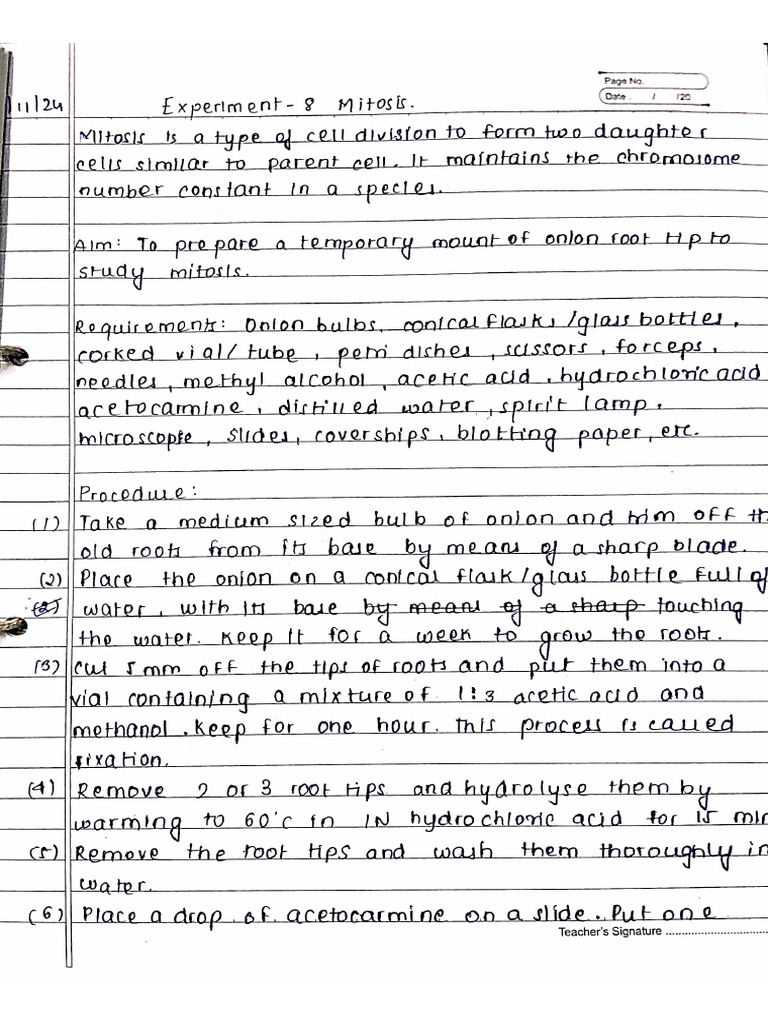 Page No.
Date: / /20
11/24 Experiment - 8 Mitosis.
Mitosis is a type of cell division to form two daughter
cells similar to parent cell. It maintains the chromosome
number constant in a species.
Aim: To prepare a temporary mount of onion root tip to
study mitosis.
Requirements: Onion bulbs, conical flasks/glass bottles,
corked vial/tube, petri dishes, scissors, forceps,
needles, methyl alcohol, acetic acid, hydrochloric acid
acetocarmine, distilled water, spirit lamp,
microscopie, slides, coverships, blotting paper, etc.
Procedure:
(1) Take a medium sized bulb of onion and trim off th
old roots from its base by means of a sharp blade.
(2) Place the onion on a conical flask/glass bottle full of
(3) water, with its base by means of a sharp touching
the water. Keep it for a week to grow the roots.
(3) Cut 5 mm off the tips of roots and put them into a
vial containing a mixture of 1:3 acetic acid and
methanol. Keep for one hour. This process is called
fixation.
(4) Remove 2 or 3 root tips and hydrolyse them by
warming to 60°c in 1N hydrochloric acid for 15 min
(5) Remove the root tips and wash them thoroughly in
water.
(6) Place a drop of acetocarmine on a slide. Put one
Teacher's Signature ....................